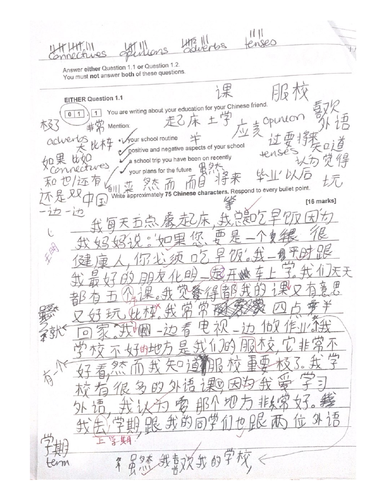 connectives opinions adverbs tenses
Answer either Question 1.1 or Question 1.2
You must not answer both of these questions.
课 服校
EITHER Question 1.1
0 1 . 1 You are writing about your education for your Chinese friend.
极了 非常 Mention 起床 上学 应该 opinion 喜欢 外语
adverbs 太 比较 your school routine 还要 将来 知道
如果 比如 positive and negative aspects of your school tenses 认为 觉得
connectives a school trip you have been on recently
和 也 还有 your plans for the future 虽然
还是 然而 而且 将来 毕业以后 玩
一边 一边 中国 Write approximately 75 Chinese characters. Respond to every bullet point.
[16 marks]
我每天五点 起床,我总吃早饭因为
我妈妈说:如果您要是一个 很
健康人,你必须吃早饭。我 时跟
我最好的朋友 一起开车上学。我们天天
都有五个课。我觉得都我的课又有意思
又好玩。比较我常常 四点 半
回家。我 一边看电视一边做作业。我
学校不好地方是我们的服校。它非常不
好看然而我知道服校重要极了。我学
校有很多的外语课因为我爱学习
外语。我认为 那个地方非常好。
我去学期跟我的同学们也跟两位外语
上学期
有个
学期
term
虽然我喜欢我的学校,